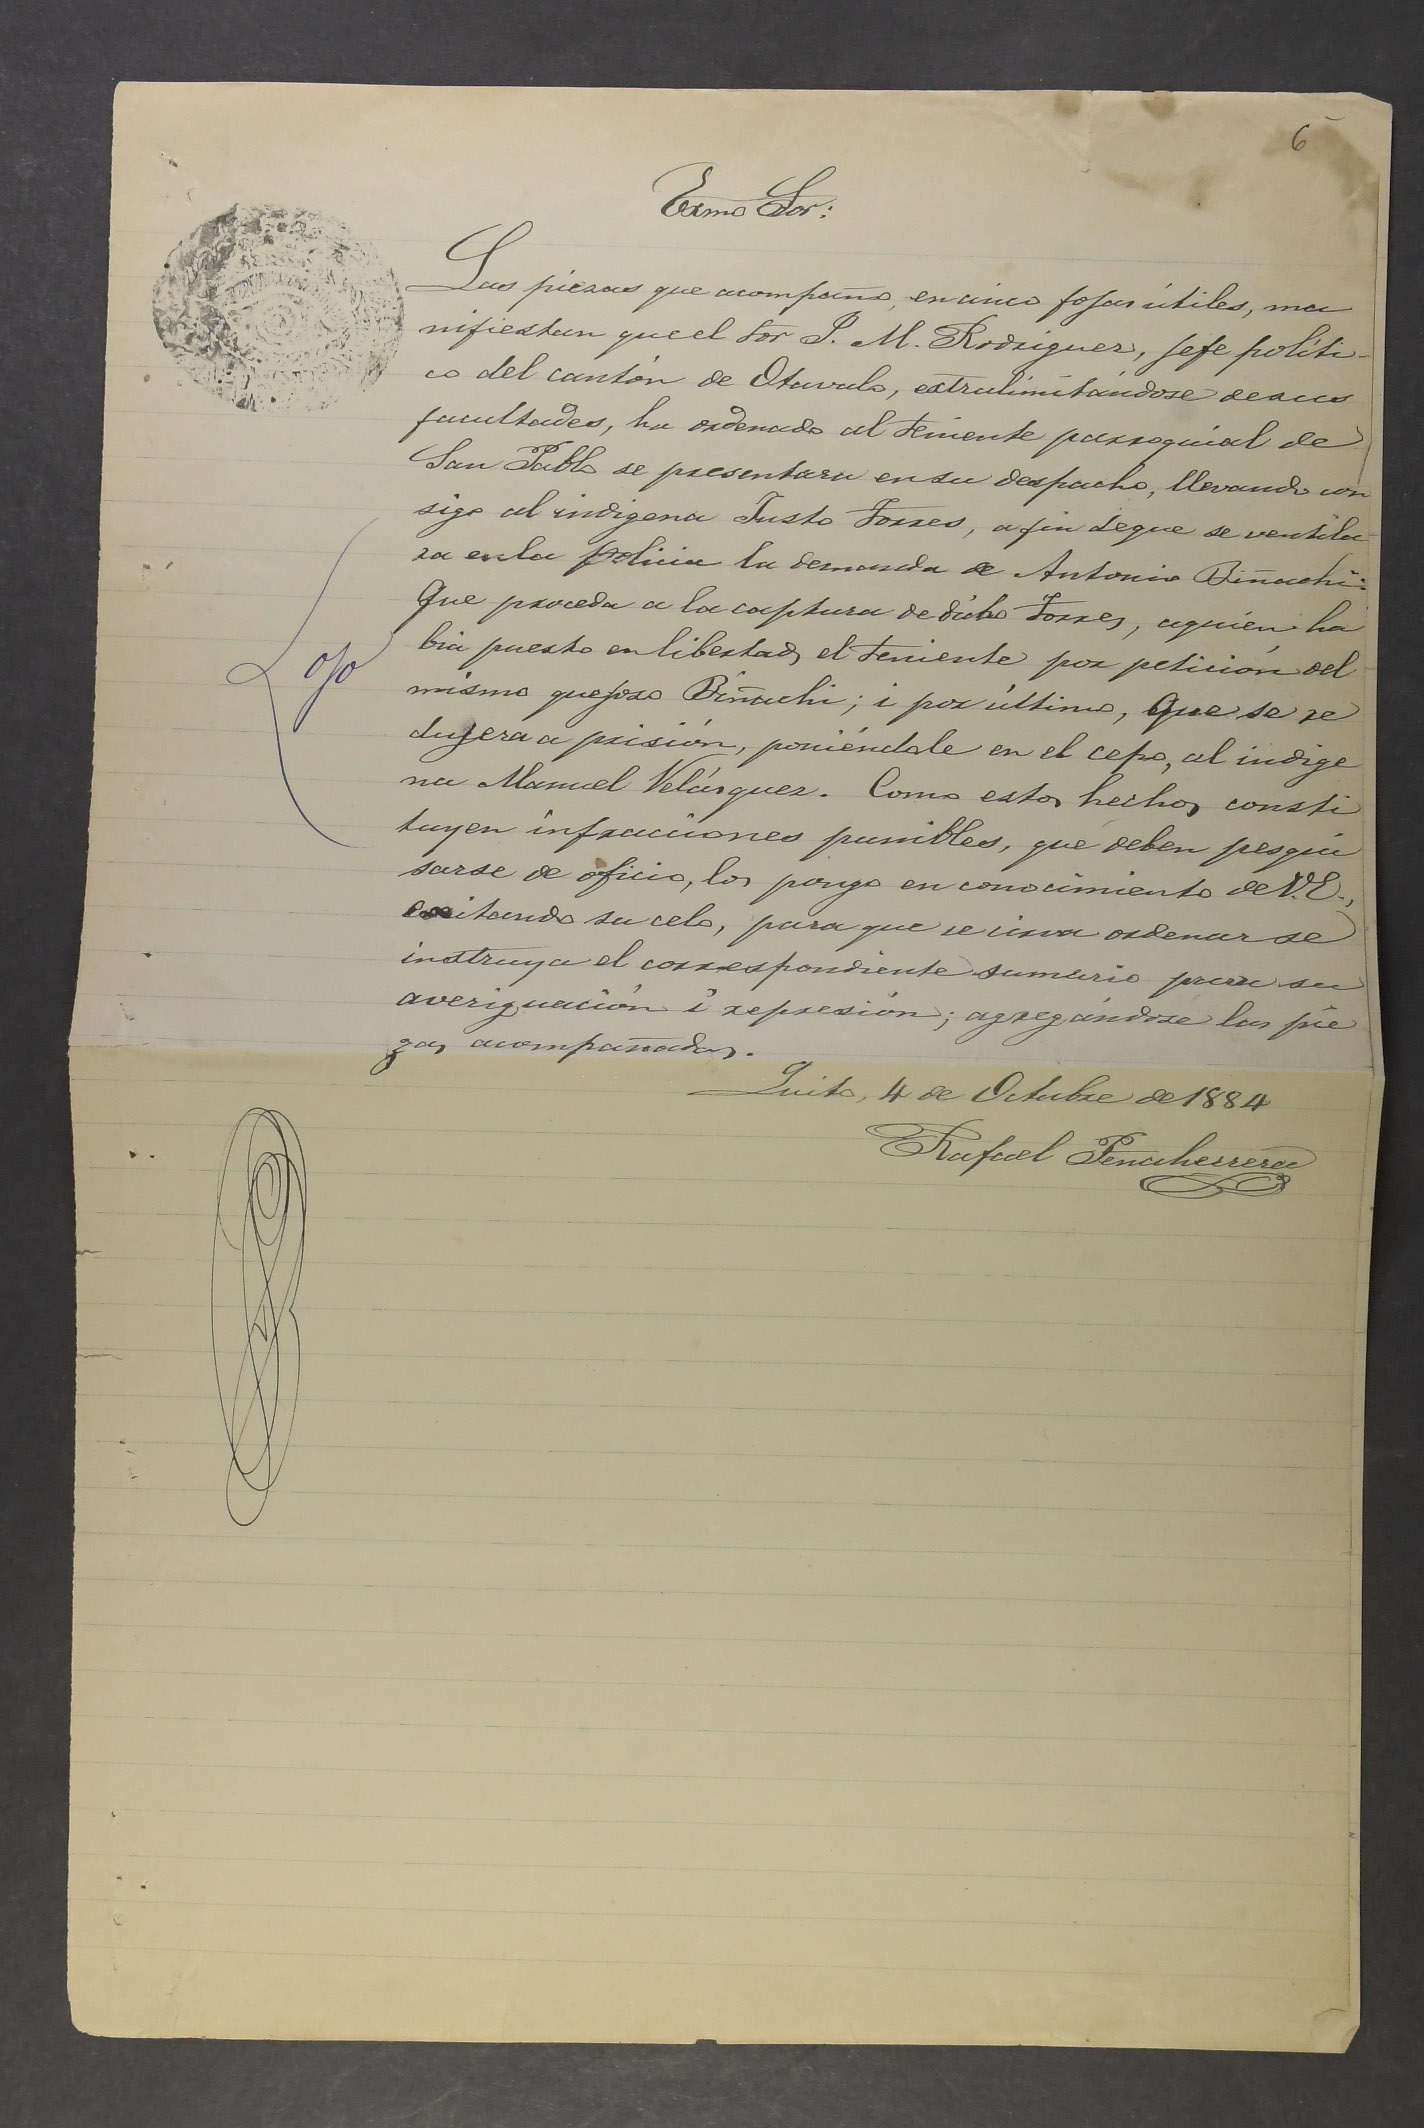 6
Exmo Sor:
Las piezas que acompaño, en cinco fojas útiles, ma
nifiestan que el Sor P. M. Rodriguez, jefe políti-
co del cantón de Otavalo, estralimitándose de sus
facultades, ha ordenado al teniente parroquial de
San Pablo se presentara en su despacho, llevando con
sigo al indigena Justo Torres, a fin de que se ventila-
ra en la policia la demanda de Antonio Biñachi:
Que proceda a la captura de dicho Torres, a quien ha
bia puesto en libertad, el teniente por petición del
ojo
mismo quejoso Biñachi; i por último, que se re
dujera a prisión, poniéndole en el cepo, al indige
na Manuel Velásquez. Como estos hechos consti
tuyen infracciones punibles, que deben pesqui
sarse de oficio, los pongo en conocimiento de V.E.,
exitando su celo, para que se sirva ordenar se
instruya el correspondiente sumario para su
averiguación i represión; agregándose las pie
zas acompañadas.
Quito, 4 de Octubre de 1884
Rafael Peñaherrera